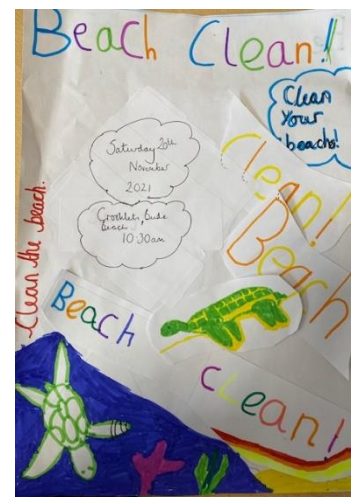 Beach Clean!
Clean
Your
beachs!
Saturday 20th
November
2021
Crooklets, Bude
Beach
10:30am
Clean!
Beach
Clean the beach.
Beach
cLean!